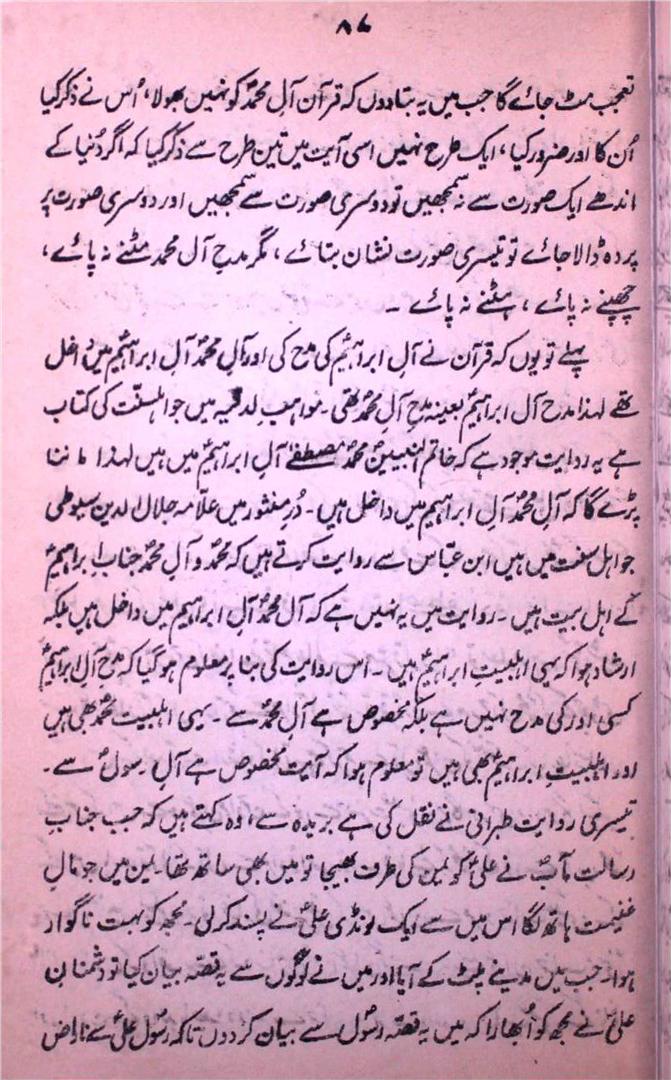 ۸۷
تعجب مٹ جائے گا جب میں یہ بتا دوں کہ قرآن آلِ محمدؐ کو نہیں بھولا، اُس نے ذکر کیا
اُن کا اور ضرور کیا، ایک طرح نہیں اسی آیت میں تین طرح سے ذکر کیا کہ اگر دُنیا کے
اندھے ایک صورت سے نہ سمجھیں تو دوسری صورت سے سمجھیں اور دوسری صورت پر
پردہ ڈالا جائے تو تیسری صورت نشان بتائے، مگر مدحِ آل محمد مٹنے نہ پائے،
چھپنے نہ پائے، مٹنے نہ پائے ۔
پہلے تو یوں کہ قرآن نے آلِ ابراہیمؑ کی مدح کی اور آلِ محمدؐ آلِ ابراہیمؑ میں داخل
تھے لہذا مدح آل ابراہیمؑ بعینہ مدحِ آلِ محمدؐ تھی۔ مواہب لدنیہ میں جو اہلسنّت کی کتاب
ہے یہ روایت موجود ہے کہ خاتم النبیینؐ محمدؐ مصطفےٰ آلِ ابراہیمؑ میں ہیں لہذا ماننا
پڑے گا کہ آلِ محمدؐ آلِ ابراہیم میں داخل ہیں۔ دُرِ منثور میں علّامہ جلال الدین سیوطی
جو اہل سنت میں ہیں ابن عبّاس سے روایت کرتے ہیں کہ محمدؐ و آلِ محمدؐ جناب ابراہیمؑ
کے اہل بیت ہیں۔ روایت میں یہ نہیں ہے کہ آل محمدؐ آلِ ابراہیم میں داخل ہیں بلکہ
ارشاد ہوا کہ یہی اہلبیتِ ابراہیمؑ ہیں۔ اس روایت کی بنا پر معلوم ہو گیا کہ مدح آلِ ابراہیمؑ
کسی اور کی مدح نہیں ہے بلکہ مخصوص ہے آلِ محمدؐ سے۔ یہی اہلبیت محمدؐ بھی ہیں
اور اہلبیتِ ابراہیمؑ بھی ہیں تو معلوم ہوا کہ آیت مخصوص ہے آلِ رسولؐ سے۔
تیسری روایت طبرانی نے نقل کی ہے بریدہ سے، وہ کہتے ہیں کہ جب جنابِ
رسالت مآبؐ نے علیؑ کو یمن کی طرف بھیجا تو میں بھی ساتھ تھا۔ یمن میں جو مالِ
غنیمت ہاتھ لگا اس میں سے ایک لونڈی علیؑ نے پسند کر لی۔ مجھ کو بہت ناگوار
ہوا۔ جب میں مدینے پلٹ کے آیا اور میں نے لوگوں سے یہ قصّہ بیان کیا تو دشمنان
علیؑ نے مجھ کو اُبھارا کہ میں یہ قصّہ رسولؐ سے بیان کر دوں تاکہ رسُول علیؑ سے ناراض